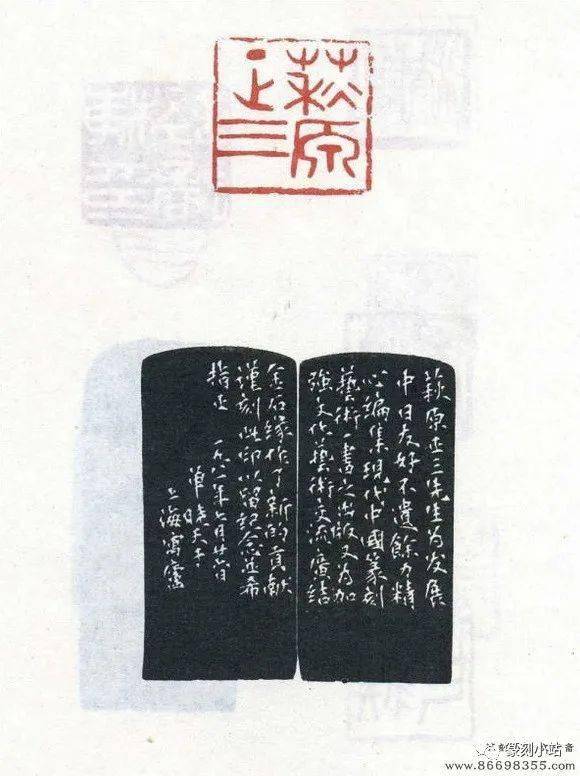 萩原
正三
萩原正三先生为发展
中日友好不遺餘力精
心编集現代中國篆刻
藝術一書之出版又为加
強文化藝術交流廣结
金石緣作了新的貢献
謹刻此印以留记念並希
指正 一九八一年六月廿六日
单晓天于
上海寓廬
篆刻小站
www.86698355.com